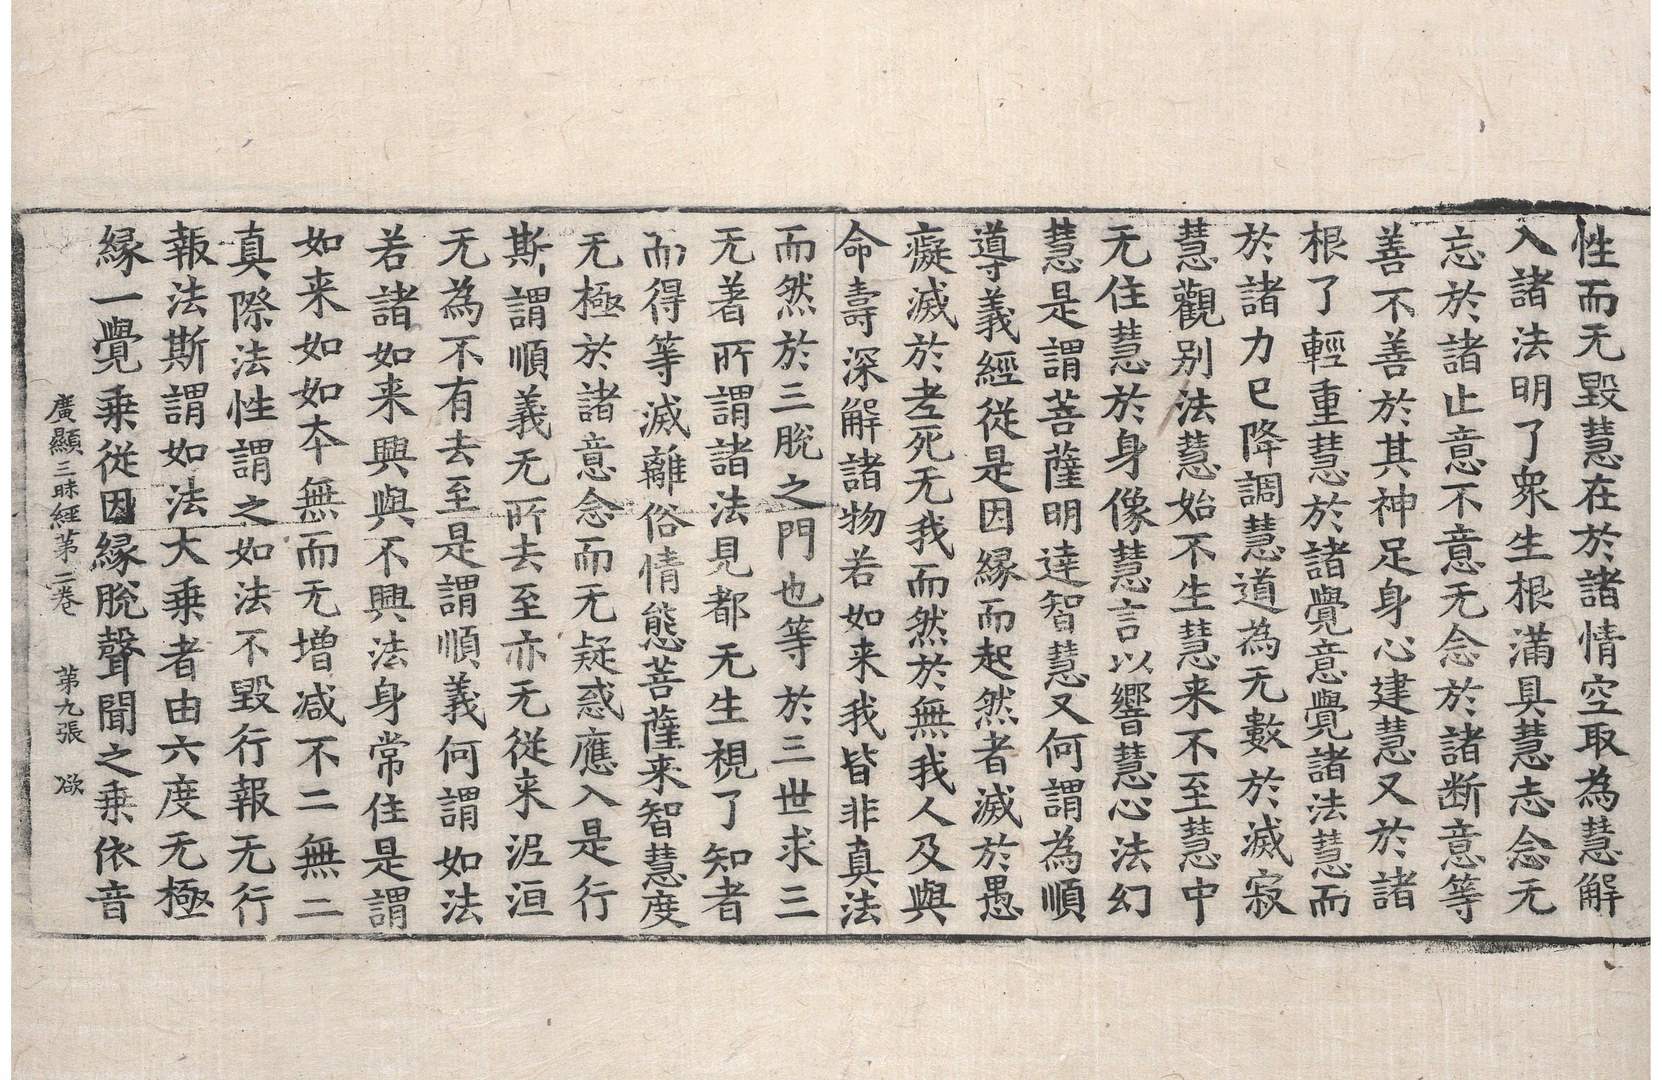 性而无毀慧在於諸情空取為慧解
入諸法明了衆生根滿具慧志念无
忘於諸止意不意无念於諸断意等
善不善於其神足身心建慧又於諸
根了輕重慧於諸覺意覺諸法慧而
於諸力已降調慧道為无數於滅寂
慧觀别法慧始不生慧来不至慧中
无住慧於身像慧言以響慧心法幻
慧是謂菩薩明達智慧又何謂為順
導義經從是因緣而起然者滅於愚
癡滅於老死无我而然於無我人及與
命壽深解諸物若如来我皆非真法
而然於三脫之門也等於三世求三
无著所謂諸法見都无生視了知者
而得等滅離俗情態菩薩来智慧度
无極於諸意念而无疑惑應入是行
斯謂順義无所去至亦无從来泥洹
无為不有去至是謂順義何謂如法
若諸如来興與不興法身常住是謂
如来如如本無而无增减不二無二
真際法性謂之如法不毀行報无行
報法斯謂如法大乗者由六度无極
緣一覺乗從因緣脫聲聞之乗依音
廣顯三昧經第二卷 第九張 欲